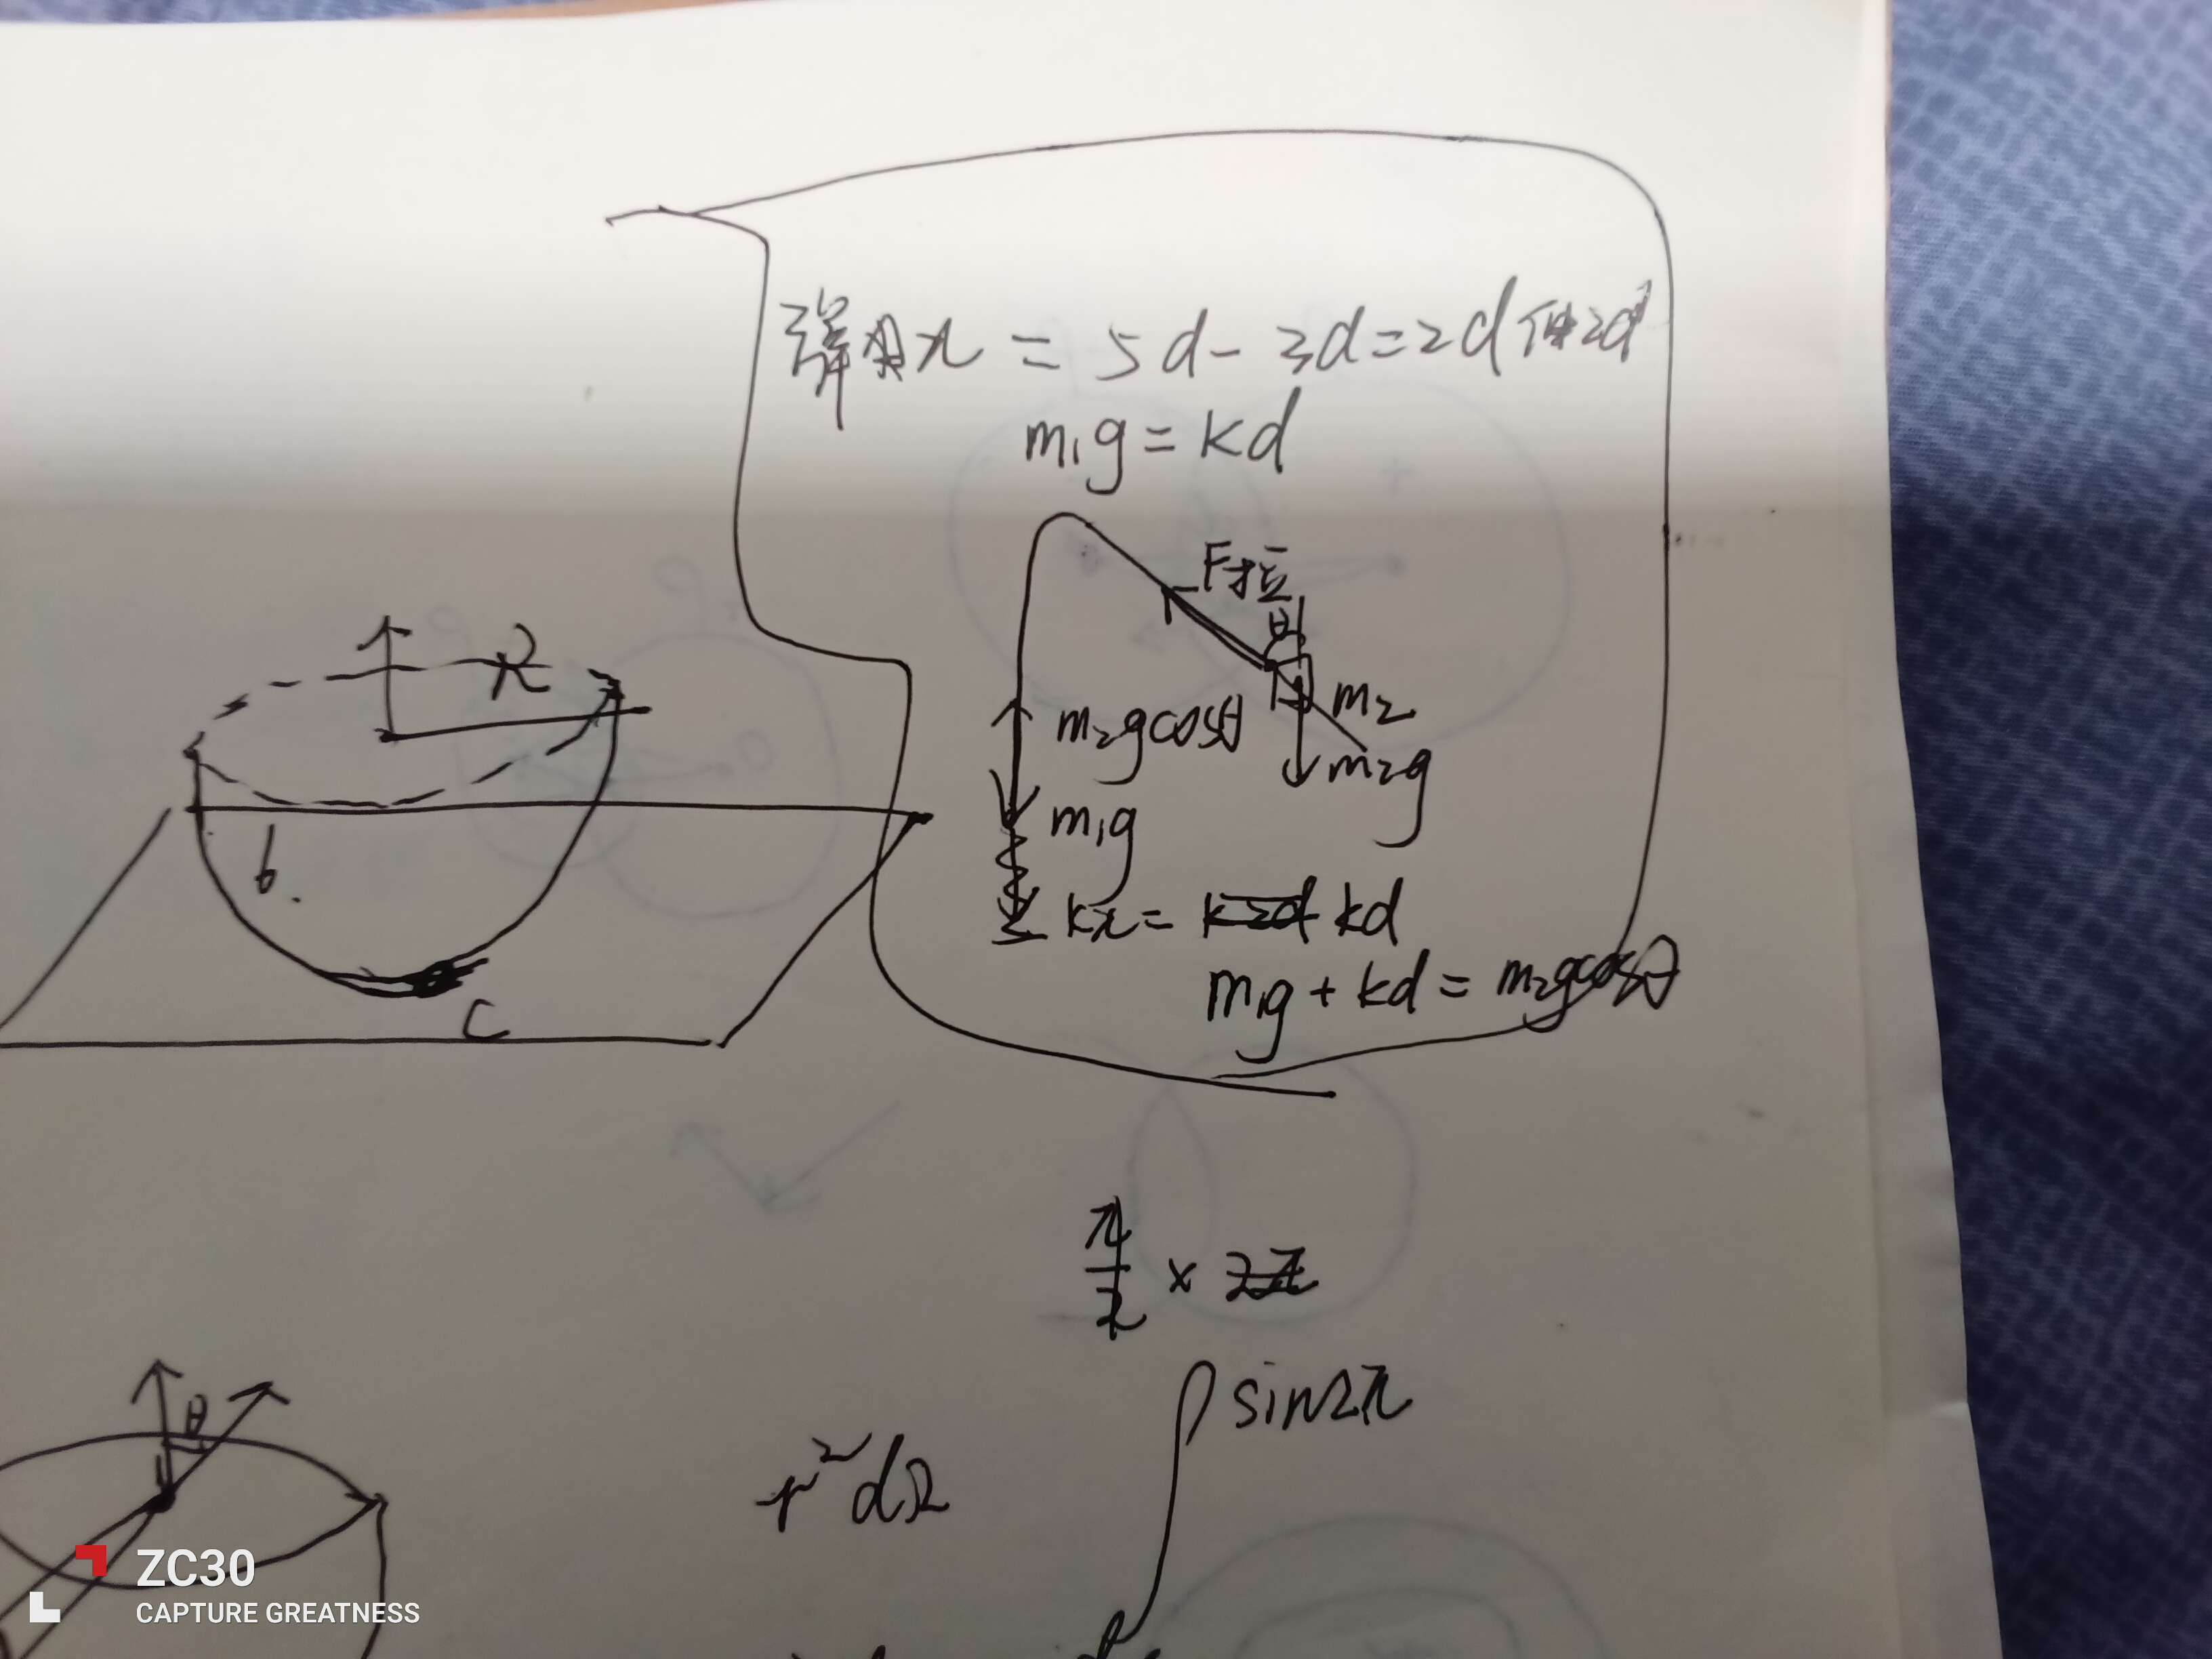 x = 5d - 3d = 2d
m₁g = kd
F拉
θ
R
m₂
m₂gcosθ
m₂g
m₁g
b
kx = k2d kd
m₁g + kd = m₂gcosθ
c
π/2 × 2π
sin2π
θ
r²dΩ
ZC30
CAPTURE GREATNESS